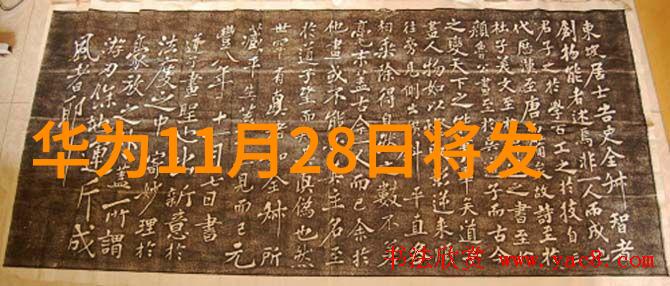 東坡居士告史全叔智者
創物能者述焉非一人而成也
君子之於學百工之於技自三
代歷漢至唐故詩至於
杜子美文至於書至於
顏魯公子而古今
之變天下之能事畢矣道子
畫人物如以逆來順
往旁見側出平直各
相乘除得自然數不差
毫末蓋古今一人而已余於
他畫或不能必其主名至
於道子望而真偽也然
世有真如全叔所
藏平生見而已元
豐八年十一月七日書
道子畫聖也出新意於
法度之中寄妙理於
豪放之外蓋所謂
游刃餘地運斤成
風者耶
华为11月28日将发
书法欣赏 www.yac8.com